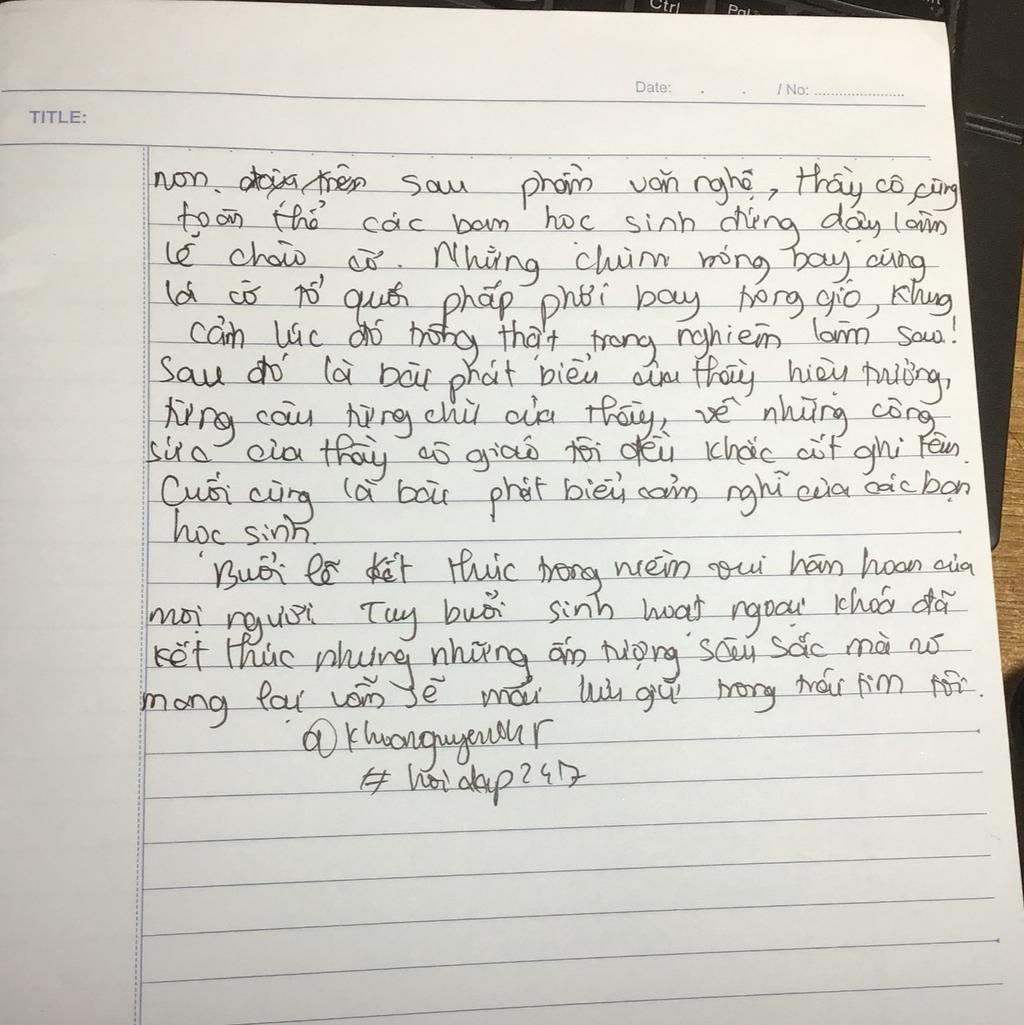 Ctrl
Date: . . / No: ......................
TITLE:
non. sau phần văn nghệ, thầy cô cùng
toàn thể các bạn học sinh đứng dậy làm
lễ chào cờ. Những chùm bóng bay cùng
lá cờ tổ quốc phấp phới bay trong gió, khung
cảnh lúc đó trông thật trang nghiêm làm sao!
Sau đó là bài phát biểu của thầy hiệu trưởng,
từng câu từng chữ của thầy, về những công
sức của thầy cô giáo tôi đều khắc cốt ghi tâm.
Cuối cùng là bài phát biểu cảm nghĩ của các bạn
học sinh.
Buổi lễ kết thúc trong niềm vui hân hoan của
mọi người. Tuy buổi sinh hoạt ngoại khoá đã
kết thúc nhưng những ấn tượng sâu sắc mà nó
mang lại vẫn sẽ mãi lưu giữ trong trái tim tôi.
# hoidap247